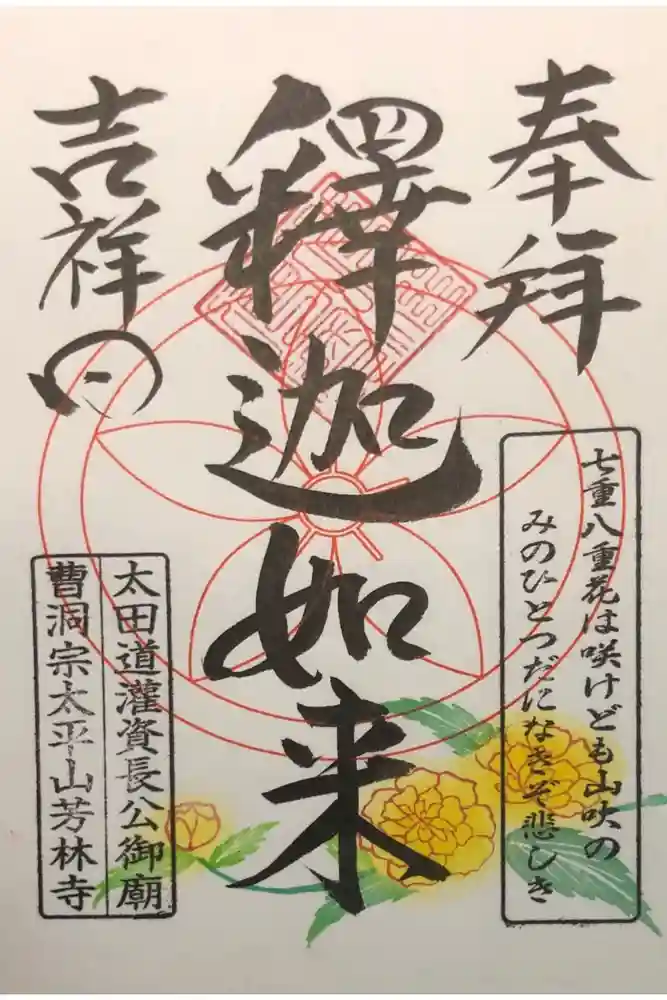 奉拝
七重八重花は咲けども山吹の
みのひとつだになきぞ悲しき
釋迦如来
吉祥日
太田道灌資長公御廟
曹洞宗太平山芳林寺